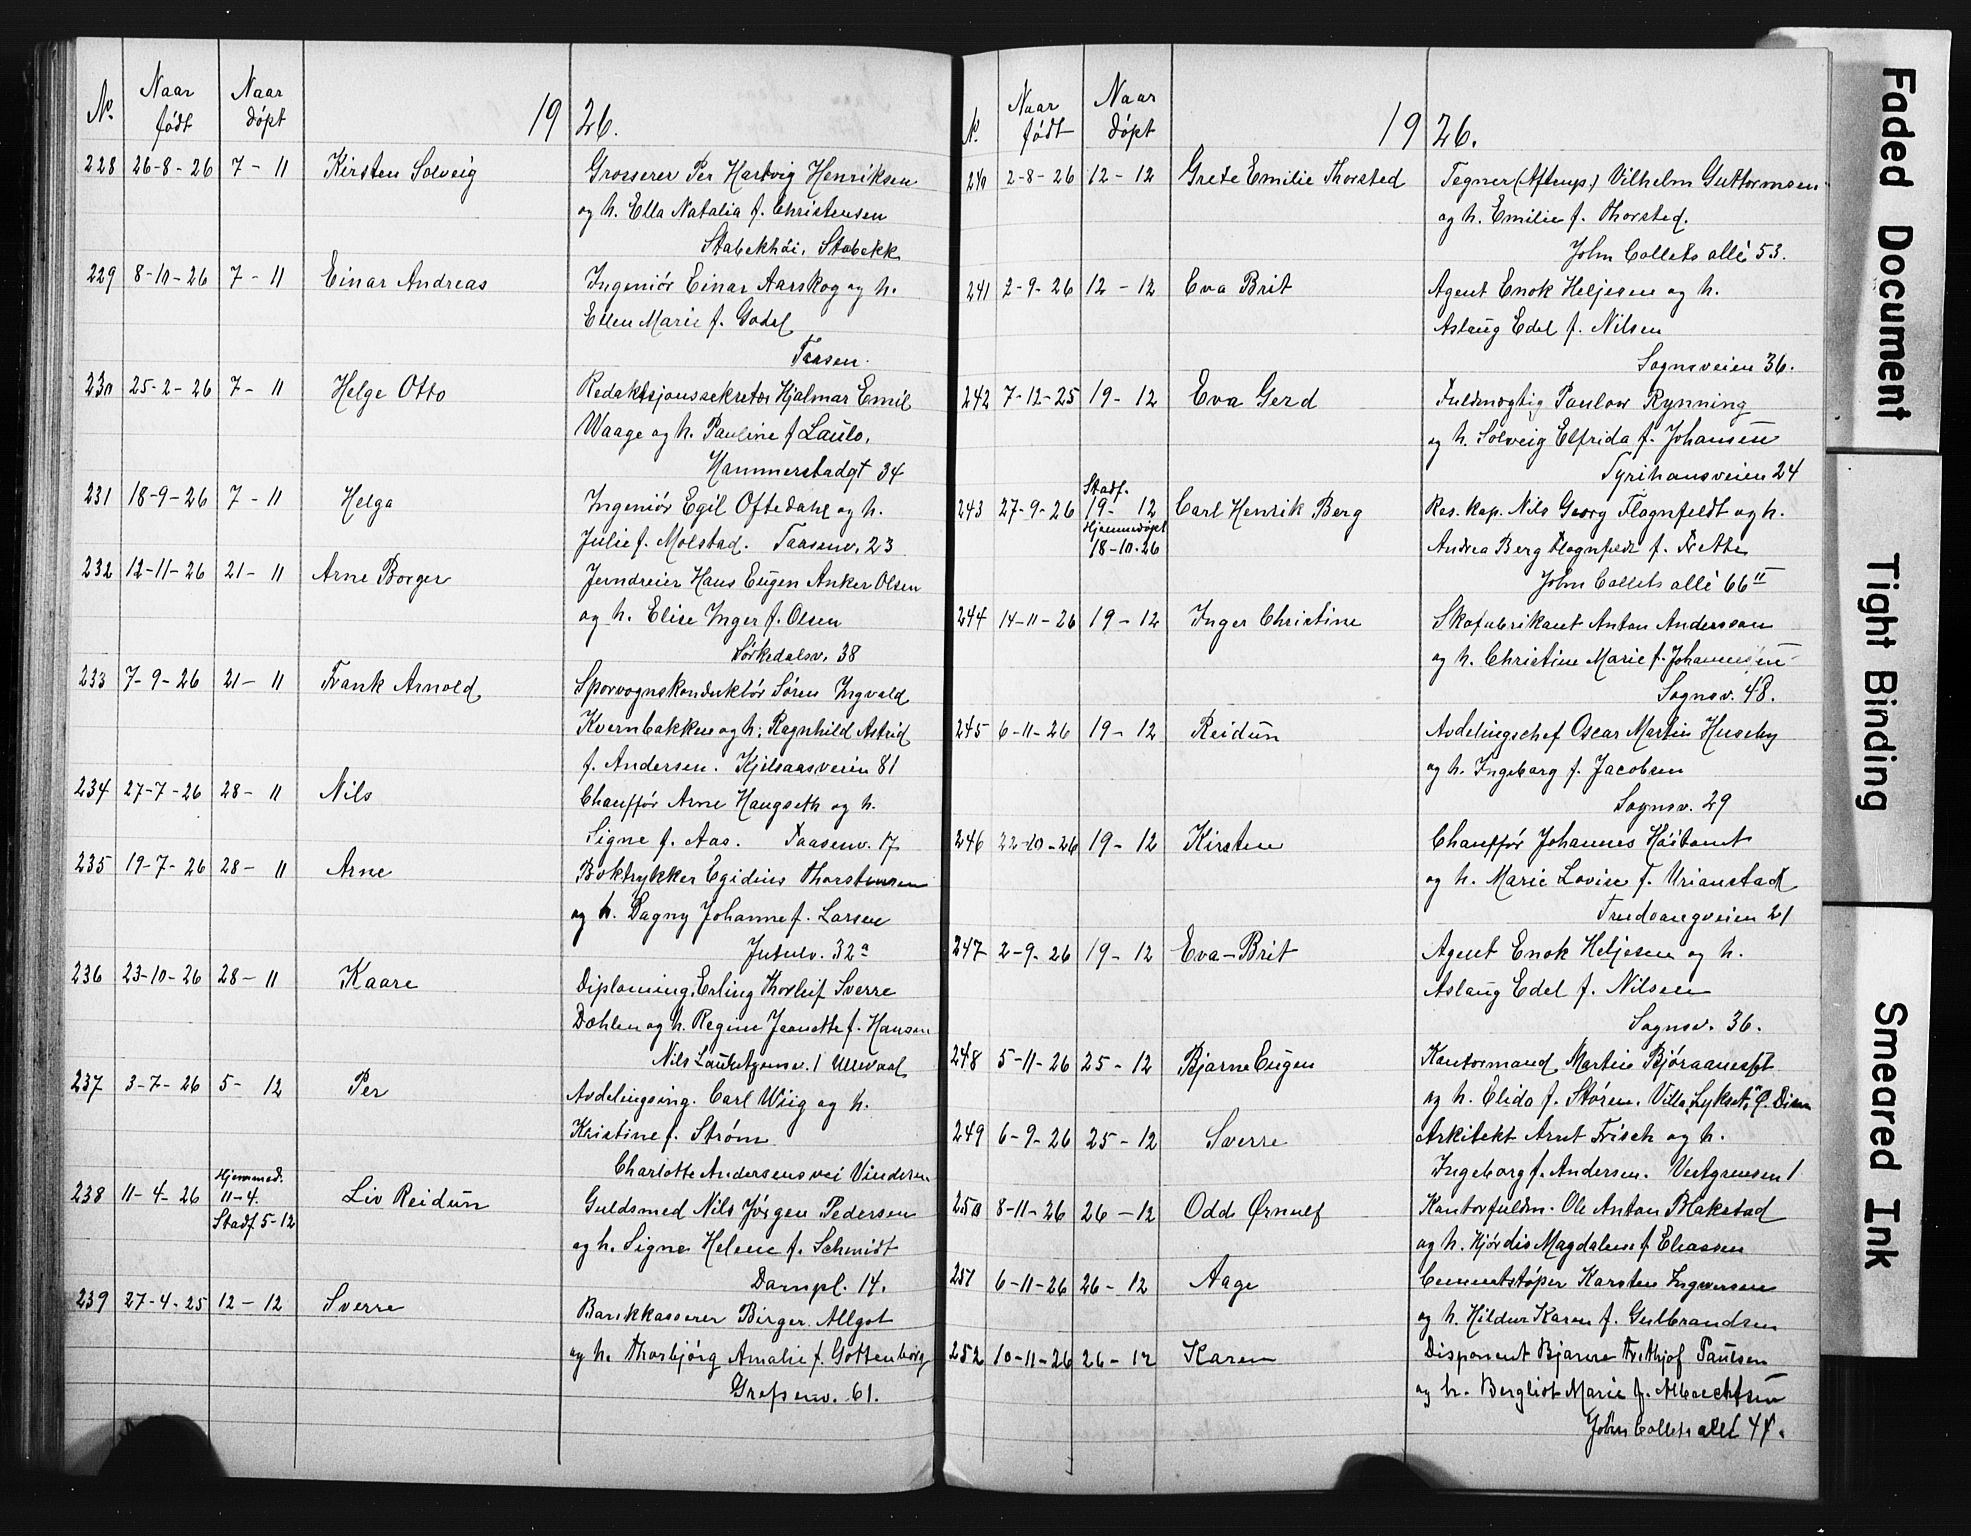 No. Naar født Naar døpt 19 26.
228 26-8-26 7-11 Kirsten Solveig Grosserer Per Hartvig Henriksen
og h. Ella Natalia f. Christensen
Stabekhöi, Stabekk
229 8-10-26 7-11 Einar Andreas Ingeniör Einar Aarskog og h.
Ellen Marie f. Godel
Taasen.
230 25-2-26 7-11 Helge Otto Redaktsjonssekretær Hjalmar Emil
Waage og h. Pauline f. Laulo.
Hammerstadgt 34
231 18-9-26 7-11 Helga Ingeniör Egil Oftedahl og h.
Julie f. Molstad. Taasenv. 23
232 12-11-26 21-11 Arne Borger Jerndreier Hans Eugen Anker Olsen
og h. Elise Inger f. Olsen
Sörkedalsv. 38
233 7-9-26 21-11 Frank Arnold Sporvognskonduktör Sören Ingvald
Kvernbakken og h. Ragnhild Astrid
f. Andersen. Kjelsaasveien 81
234 27-7-26 28-11 Nils Chauffør Arne Haugseth og h.
Signe f. Aas. Taasenv. 17
235 19-7-26 28-11 Arne Boktrykker Egidius Thorstensen
og h. Dagny Johanne f. Larsen
Jutulv. 32a
236 23-10-26 28-11 Kaare Diploming. Erling Thorleif Sverre
Dæhlen og h. Regine Jeanette f. Hansen
Nils Lauritzensv. 1 Ullevaal
237 3-7-26 5-12 Per Avdelingsing. Carl Wiig og h.
Kristine f. Strøm
Charlotte Andersens vei Vinderen
238 11-4-26 Hjemmed. 11-4. Stadf. 5-12 Liv Reidun Guldsmed Nils Jörgen Pedersen
og h. Signe Helene f. Schmidt
Dampl. 14.
239 27-4-25 12-12 Sverre Bankkasserer Birger Allgot
og h. Thorbjörg Amalie f. Gottenborg
Grefsenv. 61.
N. Naar født Naar døpt 19 26.
240 2-8-26 12-12 Grete Emilie Thorsted Tegner (Aftenp.) Vilhelm Guttormsen
og h. Emilie f. Thorsted.
John Collets allé 53.
241 2-9-26 12-12 Eva Brit Agent Enok Heljesen og h.
Aslaug Edel f. Nilsen
Sognsveien 36.
242 7-12-25 19-12 Eva Gerd Fuldmægtig Paulow Rynning
og h. Solveig Elfrida f. Johansen
Tyrihansveien 24
243 27-9-26 Stadf. 19-12 Hjemmedøpt 18-10-26 Carl Henrik Berg Res. kap. Nils Georg Flognfeldt og h.
Andrea Berg Flognfeldt f. Frette
John Collets allé 66 II
244 14-11-26 19-12 Inger Christine Skofabrikant Anton Andersson
og h. Christine Marie f. Johannesen
Sognsv. 48.
245 6-11-26 19-12 Reidun Avdelingschef Oscar Martin Huseby
og h. Ingeborg f. Jacobsen
Sognsv. 29
246 22-10-26 19-12 Kirsten Chauffør Johannes Höitomt
og h. Marie Lovise f. Urianstad
Trudvangveien 21
247 2-9-26 19-12 Eva-Brit Agent Enok Heljesen og h.
Aslaug Edel f. Nilsen
Sognsv. 36.
248 5-11-26 25-12 Bjarne Eugen Kontormand Martin
og h. Elida f. Stören. Villa
249 6-9-26 25-12 Sverre Arkitekt Arnt Frisch og h.
Ingeborg f. Andersen. Vestgrensen 1
250 8-11-26 26-12 Odd Ørnulf Kontorfuldm. Ole Anton Blakstad
og h. Hjördis Magdalene f. Eliassen
251 6-11-26 26-12 Aage Cementstöper Karsten Ingversen
og h. Hildur Karen f. Gulbrandsen
252 10-11-26 26-12 Karen Disponent Bjarne Frithjof Paulsen
og h. Bergliot Marie f. Albrechtsen
John Collets allé 41.
Faded Document
Tight Binding
Smeared Ink